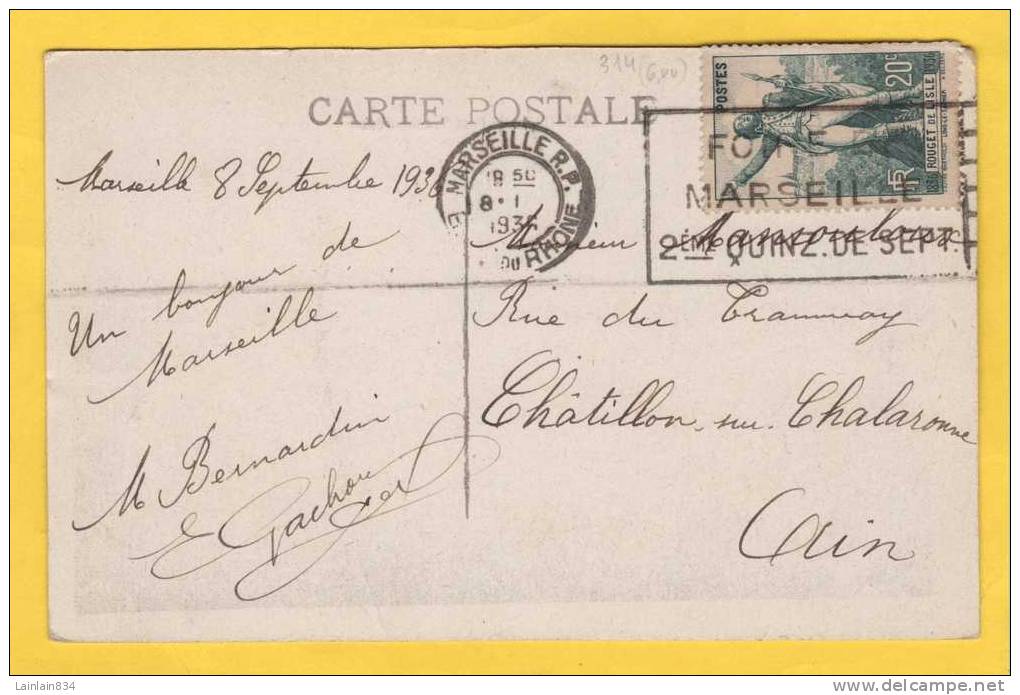 314 (6,00)
CARTE POSTALE
POSTES
20c
ROUGET DE LISLE
1936
RF
MARSEILLE R.P.
18 50
8
1936
DU RHONE
FOIRE
MARSEILLE
2ÈME QUINZ. DE SEPT.
Marseille 8 Septembre 1936
Un bonjour de
Marseille
M Bernardin
E Gachon
Monsieur
Rue du Tramway
Châtillon-sur-Chalaronne
Ain
Lainlain834
www.delcampe.net